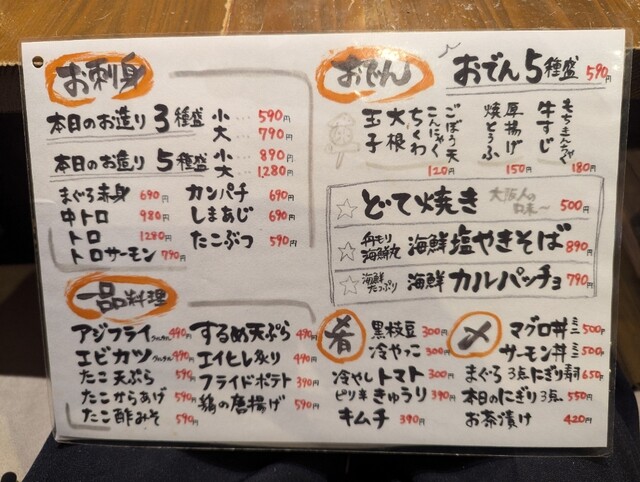 お刺身
本日のお造り 3種盛 小… 590円
大… 790円
本日のお造り 5種盛 小… 890円
大… 1280円
まぐろ赤身 690円 カンパチ 690円
中トロ 980円 しまあじ 690円
トロ 1280円 たこぶつ 590円
トロサーモン 790円
一品料理
アジフライ 490円 するめ天ぷら 490円
エビカツ 490円 エイヒレ炙り 490円
たこ天ぷら 590円 フライドポテト 390円
たこからあげ 590円 鶏の唐揚げ 590円
たこ酢みそ 590円
おでん
おでん5種盛 590円
玉子
大根
ちくわ
こんにゃく
ごぼう天
120円
焼とうふ
厚揚げ
150円
牛すじ
もちきんちゃく
180円
☆ どて焼き 大阪人の口味〜 500円
☆ 舟もり海鮮丸 海鮮塩やきそば 890円
☆ 海鮮たっぷり 海鮮カルパッチョ 790円
肴
黒枝豆 300円
冷やっこ 300円
冷やしトマト 300円
ピリ辛きゅうり 390円
キムチ 390円
〆
マグロ丼ミニ 500円
サーモン丼ミニ 500円
まぐろ3点にぎり寿司 650円
本日のにぎり3点 550円
お茶漬け 420円